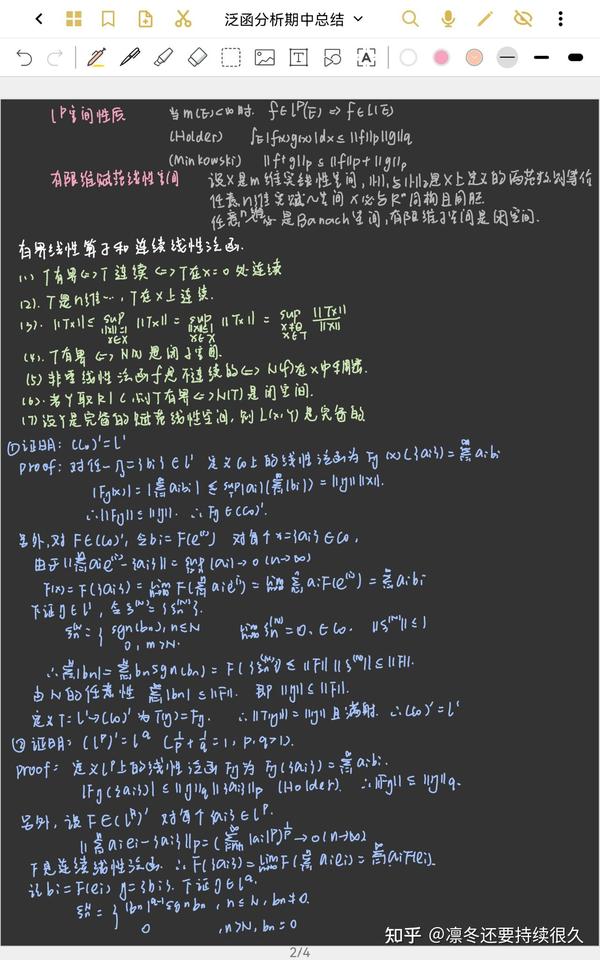 泛函分析期中总结
L^p空间性质 当m(E)<∞时. f∈L^p(E) ⇒ f∈L(E)
(Holder) ∫_E|f(x)g(x)|dx ≤ ||f||_p||g||_q
(Minkowski) ||f+g||_p ≤ ||f||_p + ||g||_p
有限维赋范线性空间 设X是m维实线性空间, ||·||₁与||·||₂是X上定义的两范数,则等价
任意n维实赋~空间X必与R^n同构且同胚
任意n维~是Banach空间,有限维子空间是闭空间.
有界线性算子和连续线性泛函.
(1) T有界⇔T连续⇔T在x=0处连续
(2). T是n维…, T在X上连续.
(3). ||Tx||≤ sup_{||x||=1, x∈X} ||Tx|| = sup_{||x||≤1, x∈X} ||Tx|| = sup_{x≠0, x∈X} ||Tx||/||x||
(4). T有界 ⇔ N(T) 是闭子空间.
(5) 非零线性泛函f是不连续的⇔N(f)在X中稠密.
(6). 若Y取R|C,则T有界⇔N(T)是闭空间.
(7) 设Y是完备的赋范线性空间, 则L(X,Y)是完备的
①证明: (C₀)'=l'
proof: 对任一η={bi}∈l' 定义C₀上的线性泛函为 Fy(x)({ai})=∑aibi
|Fy(x)|=|∑aibi| ≤ sup|ai|(∑|bi|)=||y||||x||.
∴||Fy||≤||y||. ∴Fy∈(C₀)'.
另外,对F∈(C₀)', 令bi=F(e^(i)) 对每个x={ai}∈C₀,
由于||∑aie^(i)-{ai}||=sup|ai|→0(n→∞)
F(x)=F({ai})=lim F(∑aie^(i))=lim ∑aiF(e^(i))=∑aibi
下证y∈l', 令ξ^(N)={ξn^(N)}.
ξn^(N)={ sgn(bn), n≤N lim ξn^(N)=0,∈C₀. ||ξ^(N)||≤1
0, n>N.
∴∑|bn|=∑bnsgn(bn)=F({ξn^(N)})≤||F||||ξ^(N)||≤||F||.
由N的任意性 ∑|bn|≤||F||. 即||y||≤||F||.
定义T=l'→(C₀)'为T(y)=Fy. ∴||Ty||=||y||且满射. ∴(C₀)'=l'
②证明: (l^p)'=l^q (1/p+1/q=1, p.q>1).
proof: 定义l^p上的线性泛函Fy为 Fy({ai})=∑aibi.
|Fy({ai})|≤||y||q||{ai}||p (Holder). ∴||Fy||≤||y||q.
另外, 设F∈(l^p)' 对每个{ai}∈l^p.
||∑aiei-{ai}||p=(∑|ai|^p)^(1/p)→0(n→∞)
F是连续线性泛函. ∴F({ai})=lim F(∑aiei)=∑aiF(ei).
记bi=F(ei) y={bi}. 下证y∈l^q.
ξn^N={ |bn|^(q-1)sgnbn, n≤N, bn≠0.
0 , n>N, bn=0
知乎 @凛冬还要持续很久
2/4